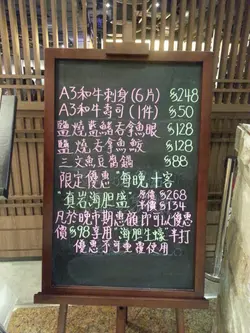 A3和牛刺身(6片) $248
A3和牛壽司(1件) $50
鹽燒醬鯖吞拿魚腩 $128
鹽燒吞拿魚鮫 $128
三文魚豆腐鍋 $88
限定優惠 每晚十客
真岩海胆盛 原價$268
半價$134
凡於晚市期惠顧即可以優惠
價$98享用 海胆生蠔 半打
優惠不可重覆使用